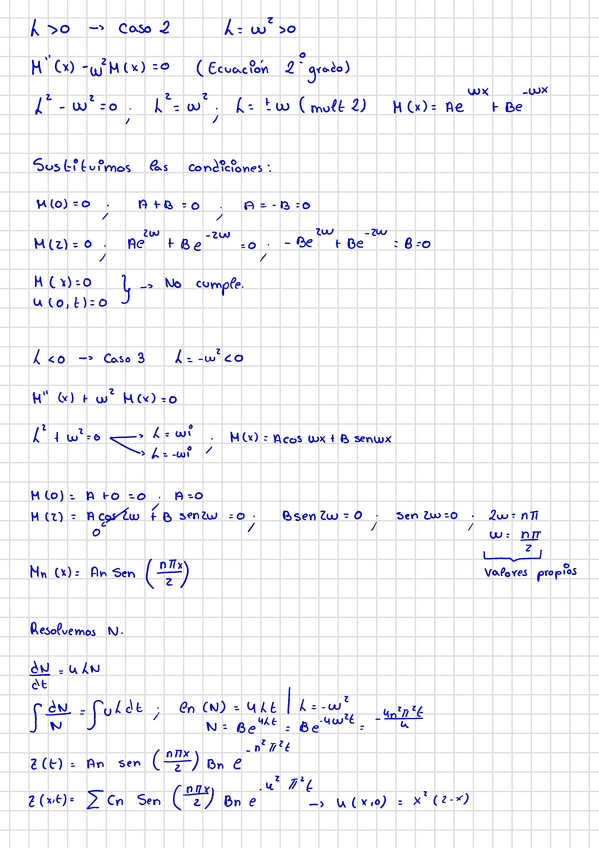 λ > 0 → Caso 2    λ = ω² > 0
M''(x) - ω² M(x) = 0    (Ecuación 2º grado)
λ² - ω² = 0 ; λ² = ω² ; λ = ± ω (mult 2)    M(x) = Ae^{ωx} + Be^{-ωx}
Sustituimos las condiciones:
M(0) = 0 ; A + B = 0 ; A = -B = 0
M(2) = 0 ; Ae^{2ω} + Be^{-2ω} = 0 ; -Be^{2ω} + Be^{-2ω} : B = 0
M(x) = 0
u(0,t) = 0 } → No cumple.
λ < 0 → Caso 3    λ = -ω² < 0
M''(x) + ω² M(x) = 0
λ² + ω² = 0 → λ = ωi
→ λ = -ωi ; M(x) = A cos ωx + B sen ωx
M(0) = A + 0 = 0 ; A = 0
M(2) = A cos 2ω + B sen 2ω = 0 ; B sen 2ω = 0 ; sen 2ω = 0 ; 2ω = nπ
0    ω = nπ/2
Valores propios
Mn(x) = An Sen (nπx/2)
Resolvemos N.
dN/dt = 4λN
∫ dN/N = ∫ 4λdt ; ln(N) = 4λt | λ = -ω²
N = Be^{4λt} = Be^{-4ω²t} = -4n²π²t/4
z(t) = An sen (nπx/2) Bn e^{-n²π²t}
z(x,t) = Σ Cn Sen (nπx/2) Bn e^{-n²π²t} → u(x,0) = x²(2-x)